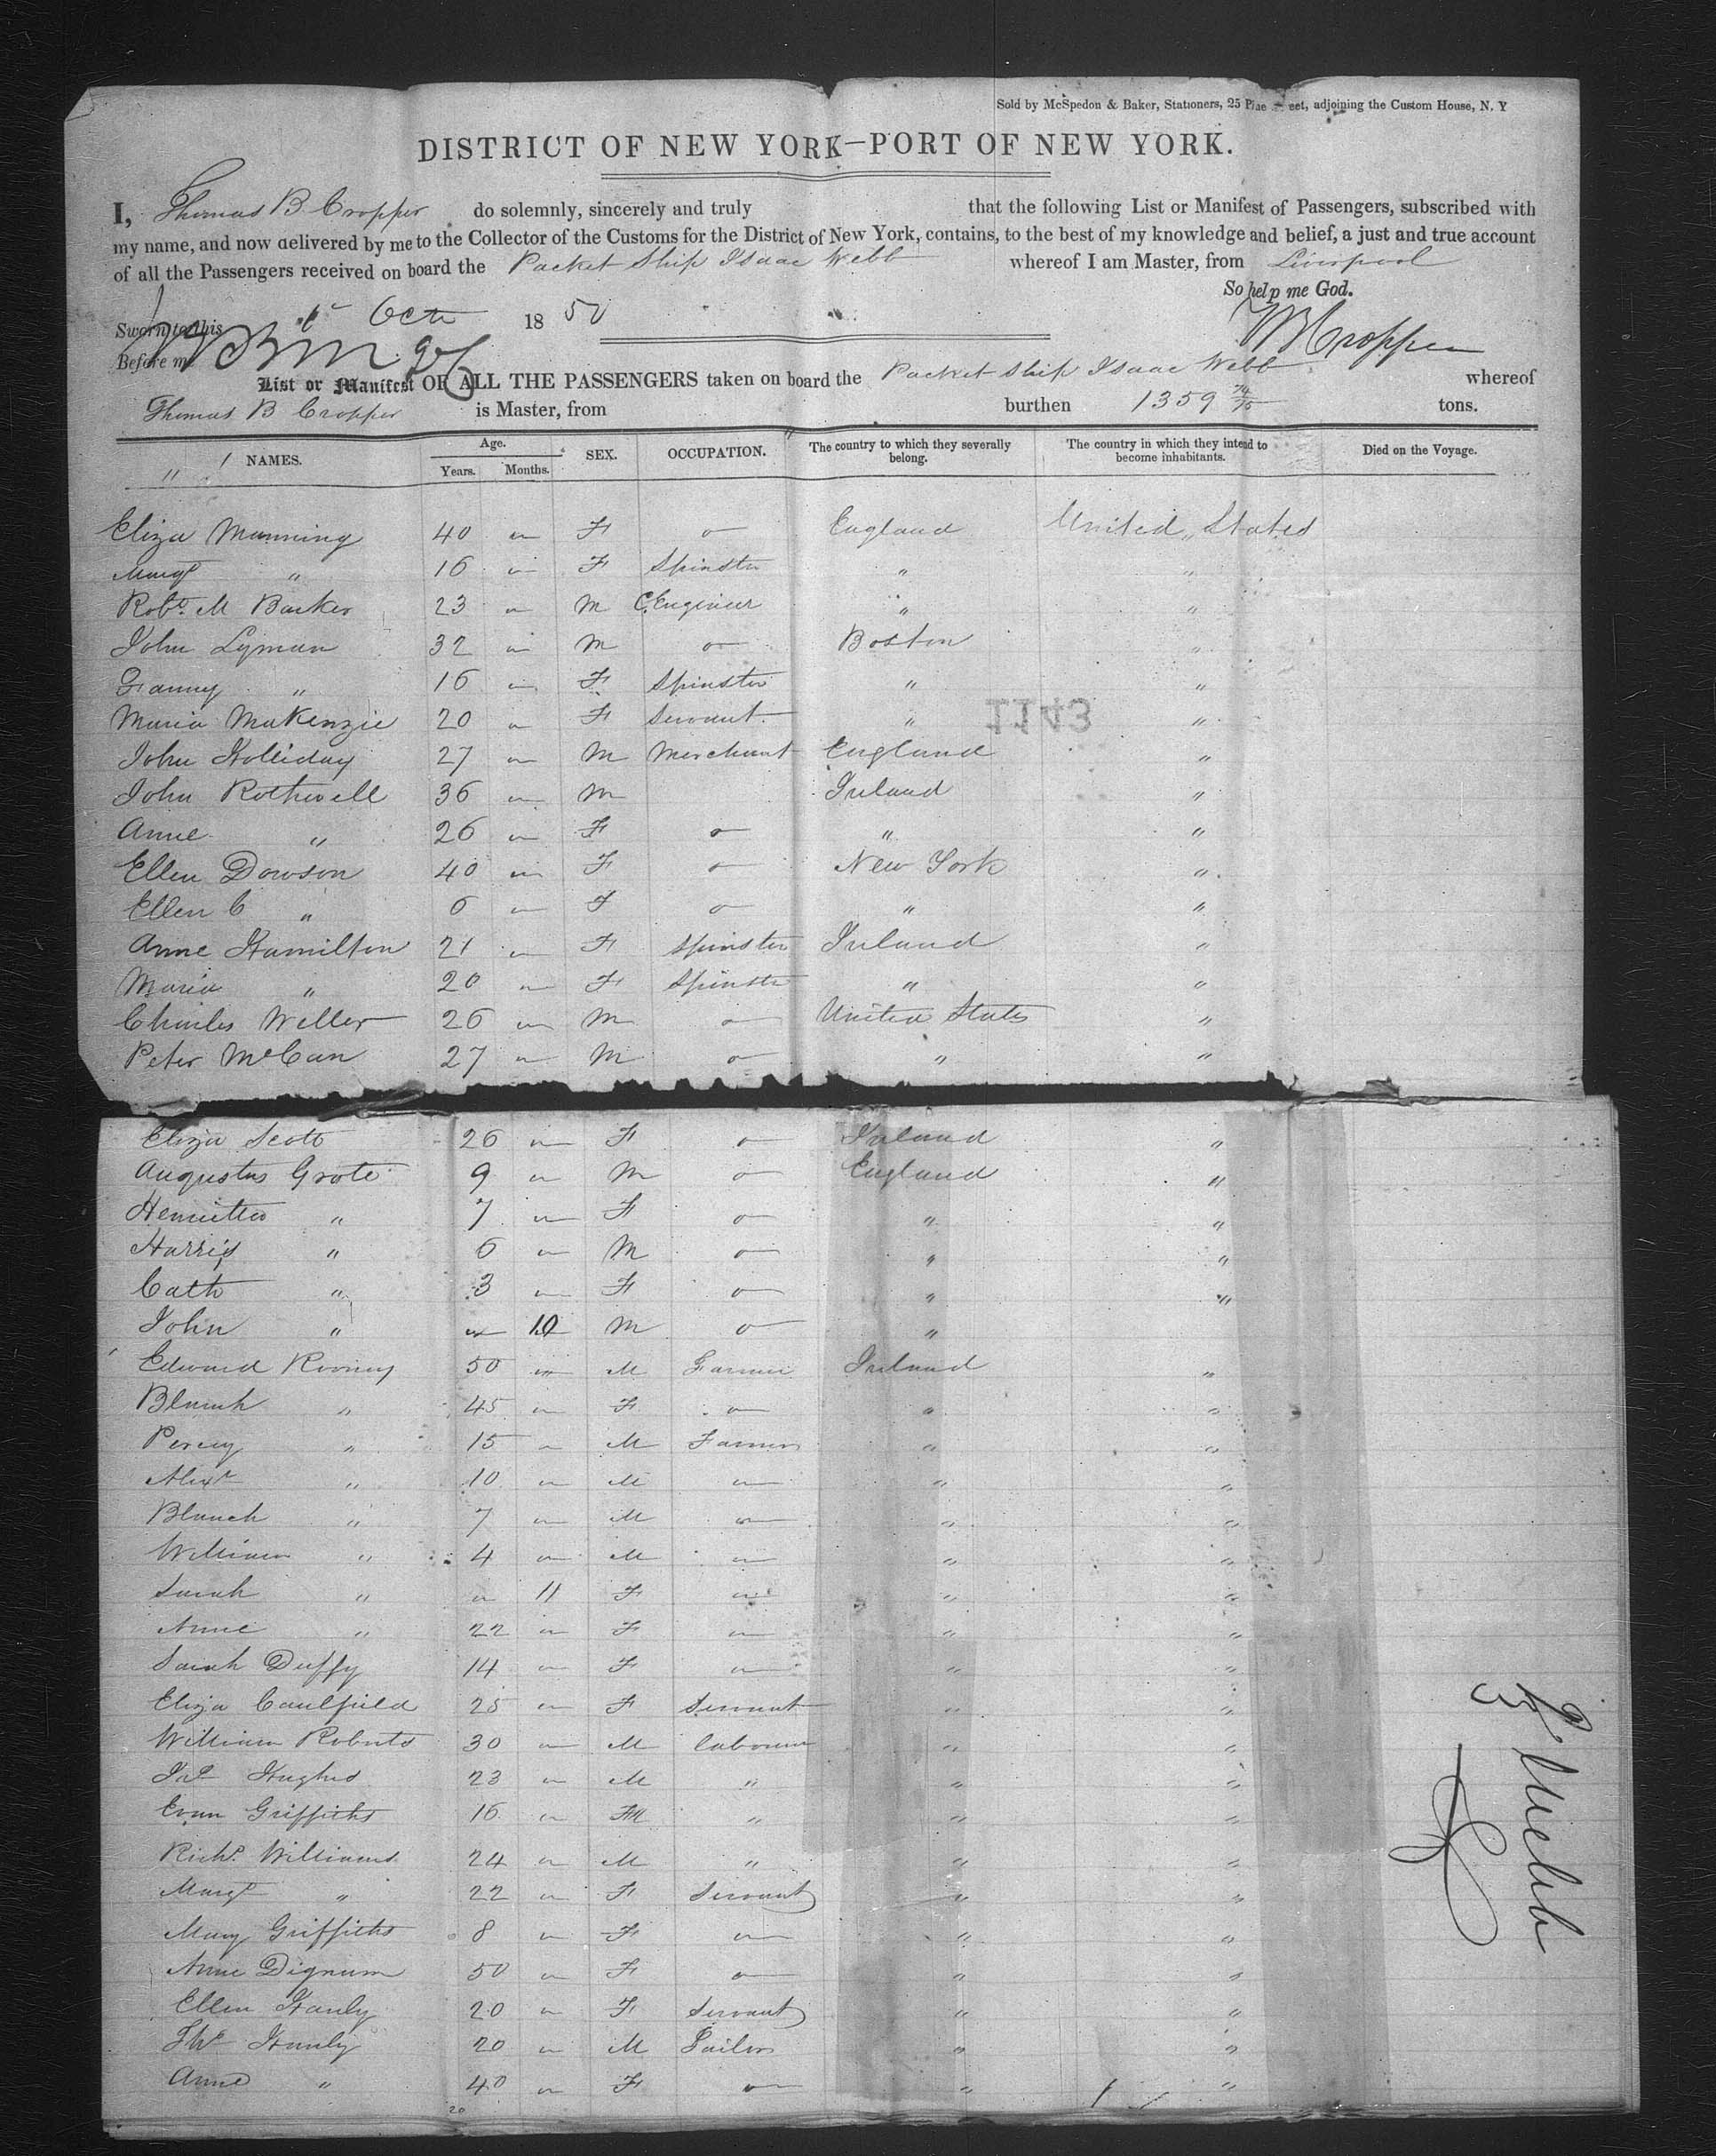 Sold by McSpedon & Baker, Stationers, 25 Pine eet, adjoining the Custom House, N. Y
DISTRICT OF NEW YORK—PORT OF NEW YORK.
I, Thomas B Cropper do solemnly, sincerely and truly that the following List or Manifest of Passengers, subscribed with
my name, and now delivered by me to the Collector of the Customs for the District of New York, contains, to the best of my knowledge and belief, a just and true account
of all the Passengers received on board the Packet Ship Isaac Webb whereof I am Master, from Liverpool
So help me God.
Sworn to this Oct 18 50
Before m TB Cropper
List or Manifest OF ALL THE PASSENGERS taken on board the Packet Ship Isaac Webb whereof
Thomas B Cropper is Master, from burthen 1359 74/95 tons.
NAMES. Age. Years. Months. SEX. OCCUPATION. The country to which they severally belong. The country in which they intend to become inhabitants. Died on the Voyage.
Eliza Manning 40 F England United States
Margt " 16 F Spinster " "
Robt. M Barker 23 M C.Engineer " "
John Lyman 32 M Boston "
Fanny " 16 F Spinster " "
Maria MaKenzie 20 F Servant " "
1143
John Holliday 27 M Merchant England "
John Rothwell 36 M Ireland "
Anne " 26 F " "
Ellen Dowson 40 F New York "
Ellen C " 6 F " "
Anne Hamilton 21 F Spinster Ireland "
Maria " 20 F Spinster " "
Charles Weller 26 M United States "
Peter McCan 27 M " "
Eliza Scott 26 F Ireland "
Augustus Grote 9 M England "
Henrietta " 7 F " "
Harris " 6 M " "
Cath " 3 F " "
John " 10 M "
Edward Rooney 50 M Farmer Ireland "
Blanch " 45 F " "
Percy " 15 M Farmer " "
Alexr " 10 M " "
Blanch " 7 M " "
William " 4 M " "
Sarah " 11 F " "
Anne " 22 F " "
Sarah Duffy 14 F " "
Eliza Caulfield 25 F Servant " "
William Roberts 30 M Labourer " "
Jno Hughes 23 M " " "
Evan Griffiths 16 M " " "
Richd. Williams 24 M " " "
Margt " 22 F Servant " "
Mary Griffiths 8 F " "
Anne Dignum 50 F " "
Ellen Hanly 20 F Servant " "
Ths Hanly 20 M Sailor " "
Anne " 40 F " "
20
I Webb